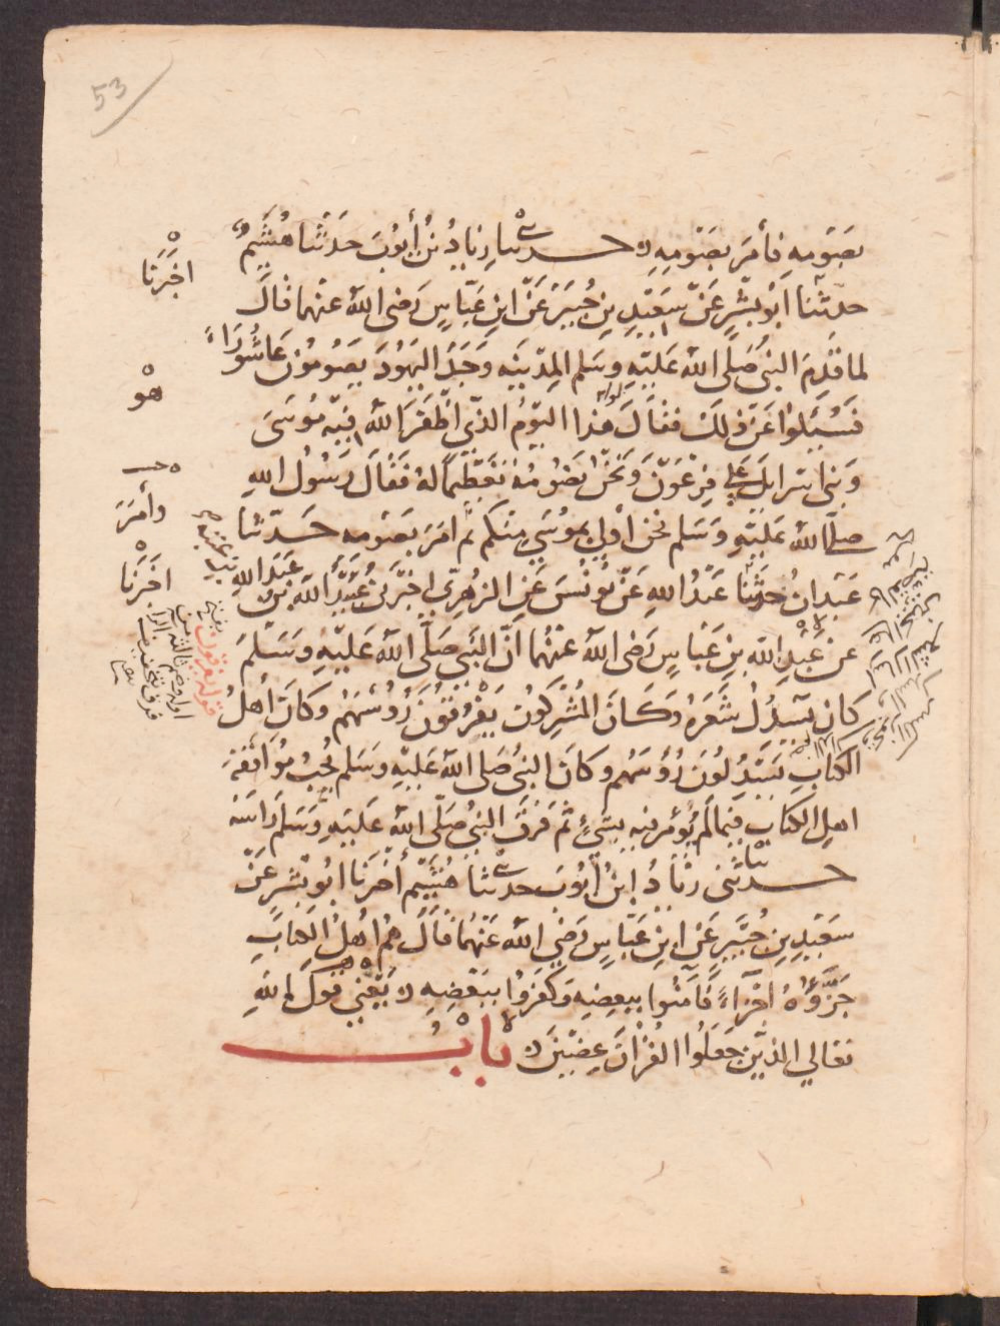 53
بصومه فأمر بصومه حدثنا زياد بن أيوب حدثنا هشيم
حدثنا أبو بشر عن سعيد بن جبير عن ابن عباس رضى الله عنهما قال
لما قدم النبى صلى الله عليه وسلم المدينه وجد اليهود يصومون عاشوراء
فسيلوا عن ذلك فقالوا هذا اليوم الذي اظفر الله فيه موسى
وبنى اسرايل على فرعون ونحن نصومه تعظيما له فقال رسول الله
صلى الله عليه وسلم نحن أولى بموسى منكم ثم امر بصومه حدثنا
عبدان حدثنا عبد الله عن يونس عن الزهري اخبرنى عبيد الله بن
عبد الله بن عتبه
عن عبد الله بن عباس رضى الله عنهما ان النبى صلى الله عليه وسلم
كان يسدل شعره وكان المشركون يفرقون رؤسهم وكان أهل
الكتاب يسدلون رؤسهم وكان النبى صلى الله عليه وسلم يحب موافقة
اهل الكتاب فيما لم يؤمر فيه بشئ ثم فرق النبى صلى الله عليه وسلم راسه
حدثنى زياد ابن أيوب حدثنا هشيم أخبرنا ابو بشر عن
سعيد بن جبير عن ابن عباس رضي الله عنهما قال هم اهل الكتاب
جزؤه اجزاء فآمنوا ببعضه وكفروا ببعضه يعني قول الله
تعالي الذين جعلوا القران عضين باب
اخبرنا
هو
وأمر
اخبرنا
قوله يفرقون